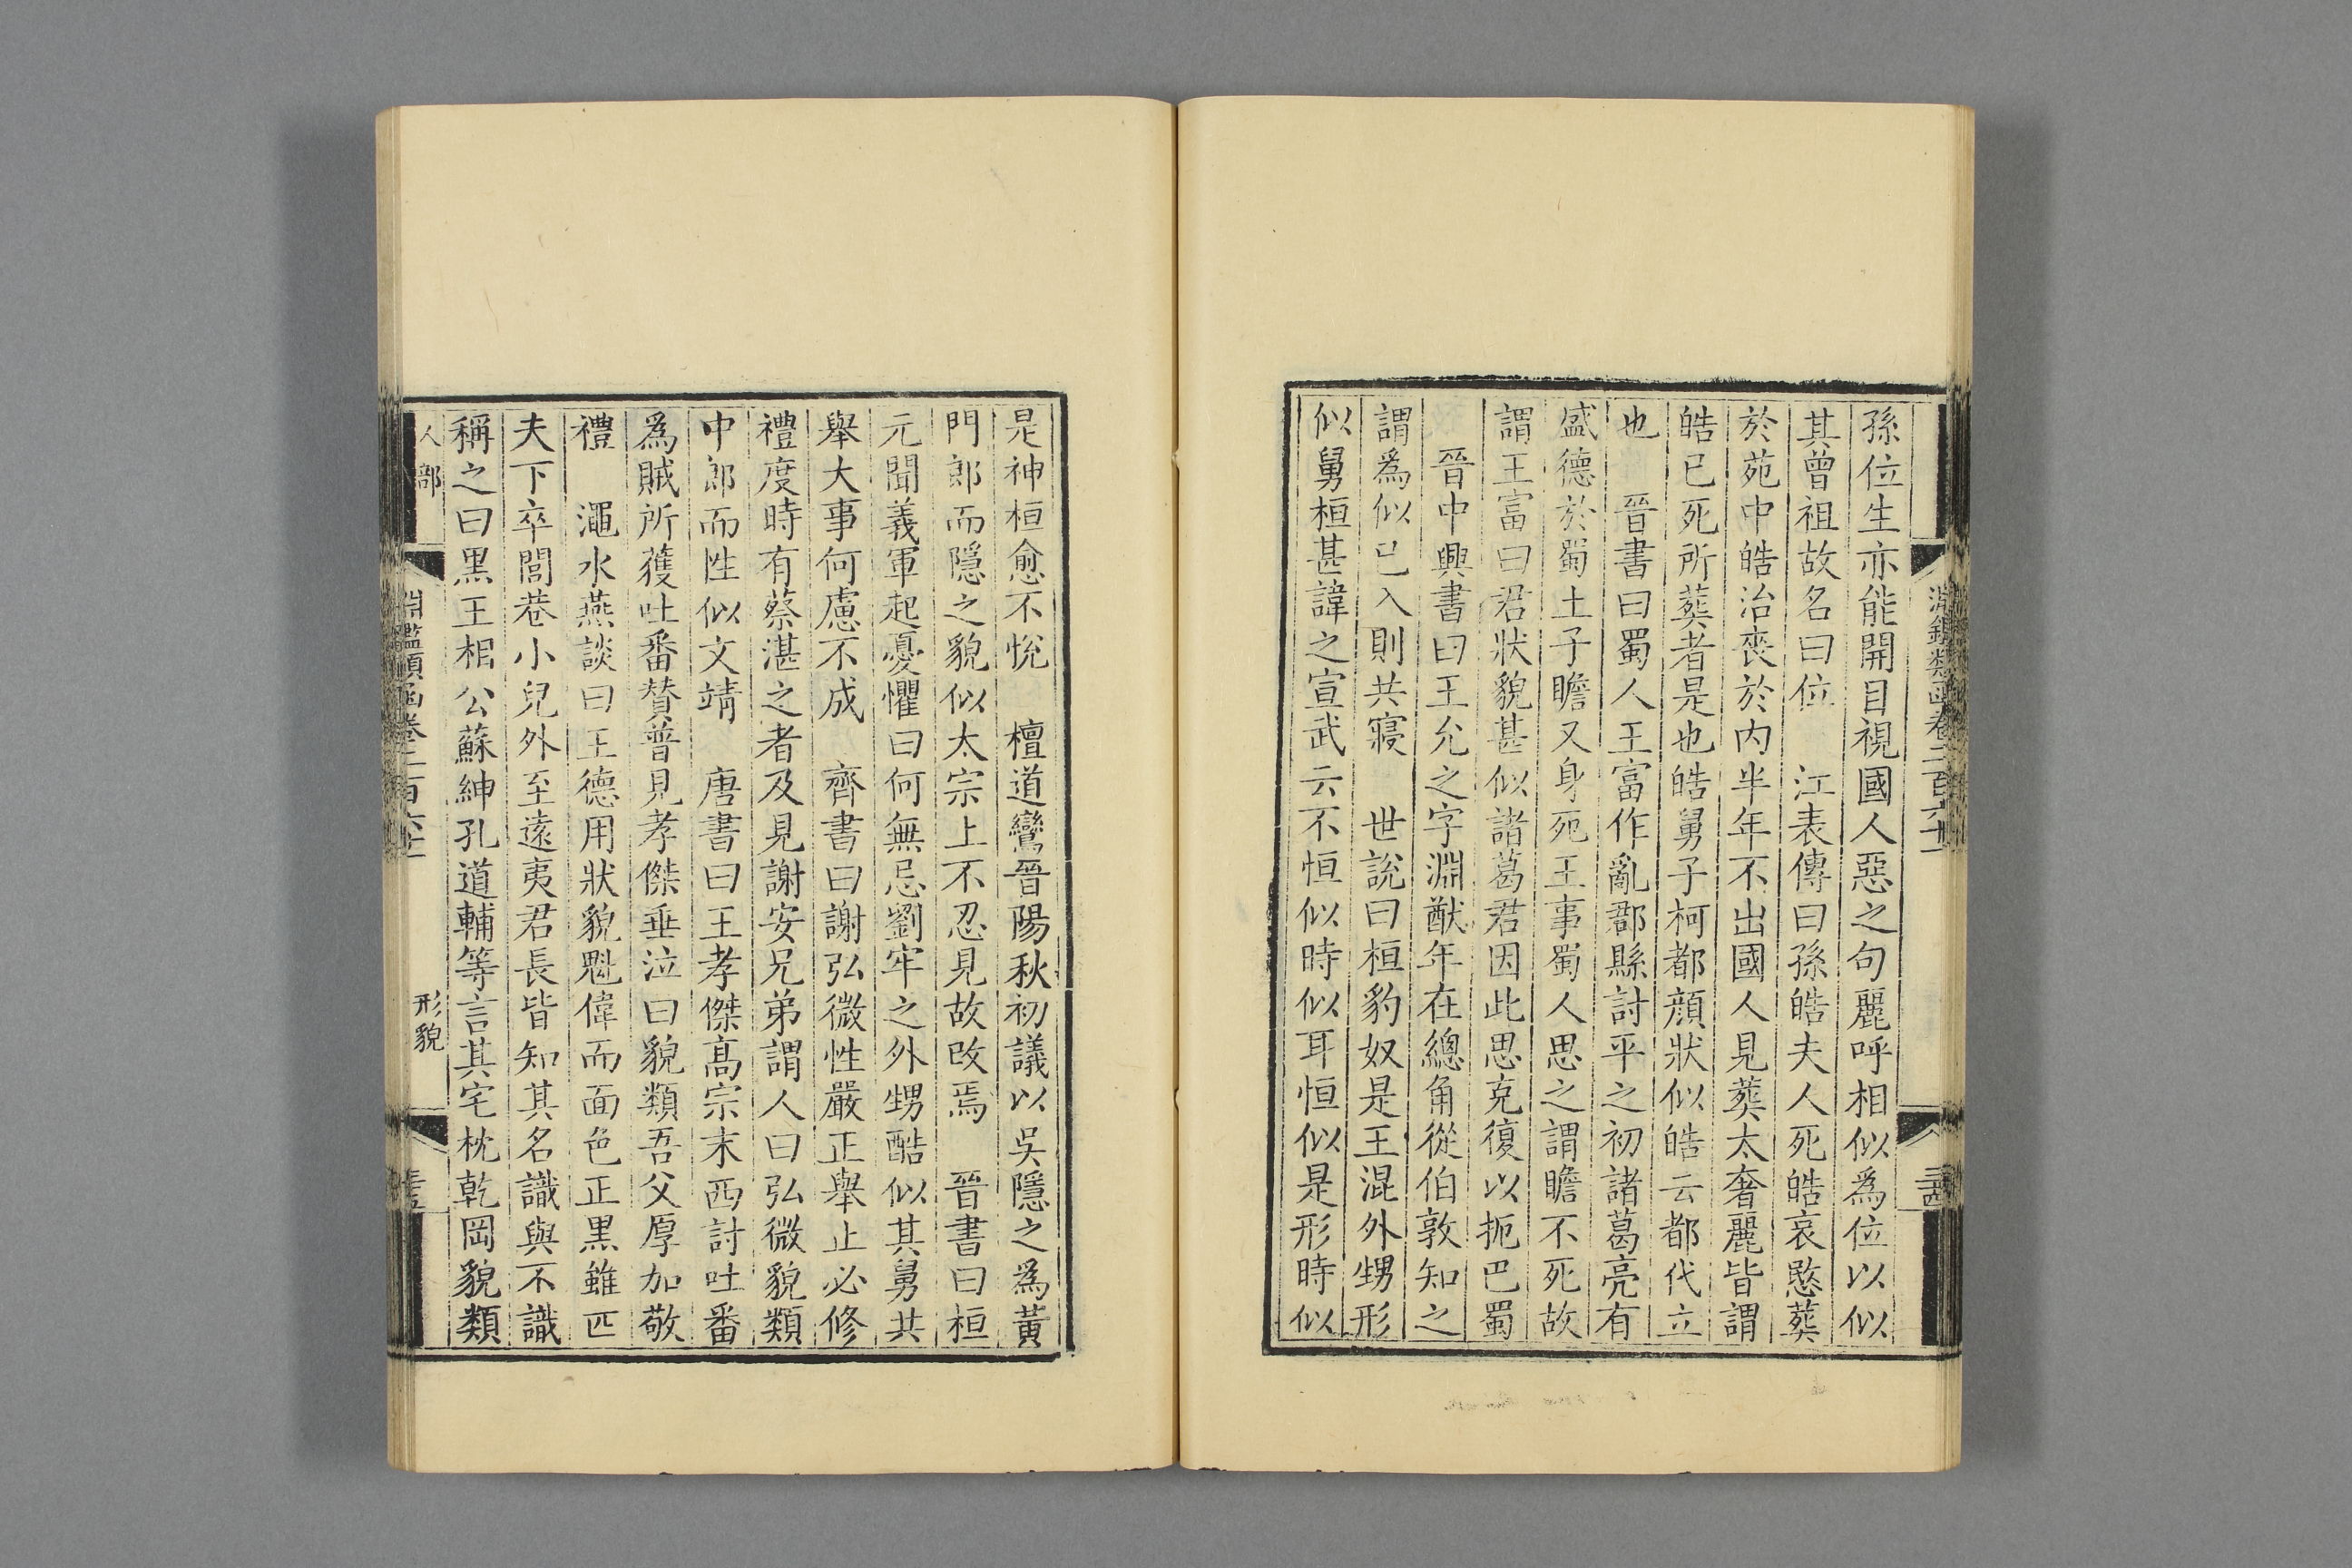 孫位生亦能開目視國人惡之句麗呼相似為位以似
其曾祖故名曰位　江表傳曰孫皓夫人死皓哀愍葬
於苑中皓治喪於内半年不出國人見葬太奢麗皆謂
皓已死所葬者是也皓舅子柯都顔狀似皓云都代立
也　晉書曰蜀人王富作亂郡縣討平之初諸葛亮有
盛德於蜀土子瞻又身死王事蜀人思之謂瞻不死故
謂王富曰君狀貌甚似諸葛君因此思克復以扼巴蜀
　晉中興書曰王允之字淵猷年在總角從伯敦知之
謂為似已入則共寢　世說曰桓豹奴是王混外甥形
似舅桓甚諱之宣武云不恒似時似耳恒似是形時似
是神桓愈不悅　檀道鸞晉陽秋初議以吳隱之為黃
門郎而隱之貌似太宗上不忍見故改焉　晉書曰桓
元聞義軍起憂懼曰何無忌劉牢之外甥酷似其舅共
舉大事何慮不成　齊書曰謝弘微性嚴正舉止必修
禮度時有蔡湛之者及見謝安兄弟謂人曰弘微貌類
中郎而性似文靖　唐書曰王孝傑高宗末西討吐番
為賊所獲吐番贊普見孝傑垂泣曰貌類吾父厚加敬
禮　澠水燕談曰王德用狀貌魁偉而面色正黑雖匹
夫下卒閭巷小兒外至遠夷君長皆知其名識與不識
稱之曰黑王相公蘇紳孔道輔等言其宅枕乾岡貌類
人部
淵鑑類函卷二百六十一
形貌